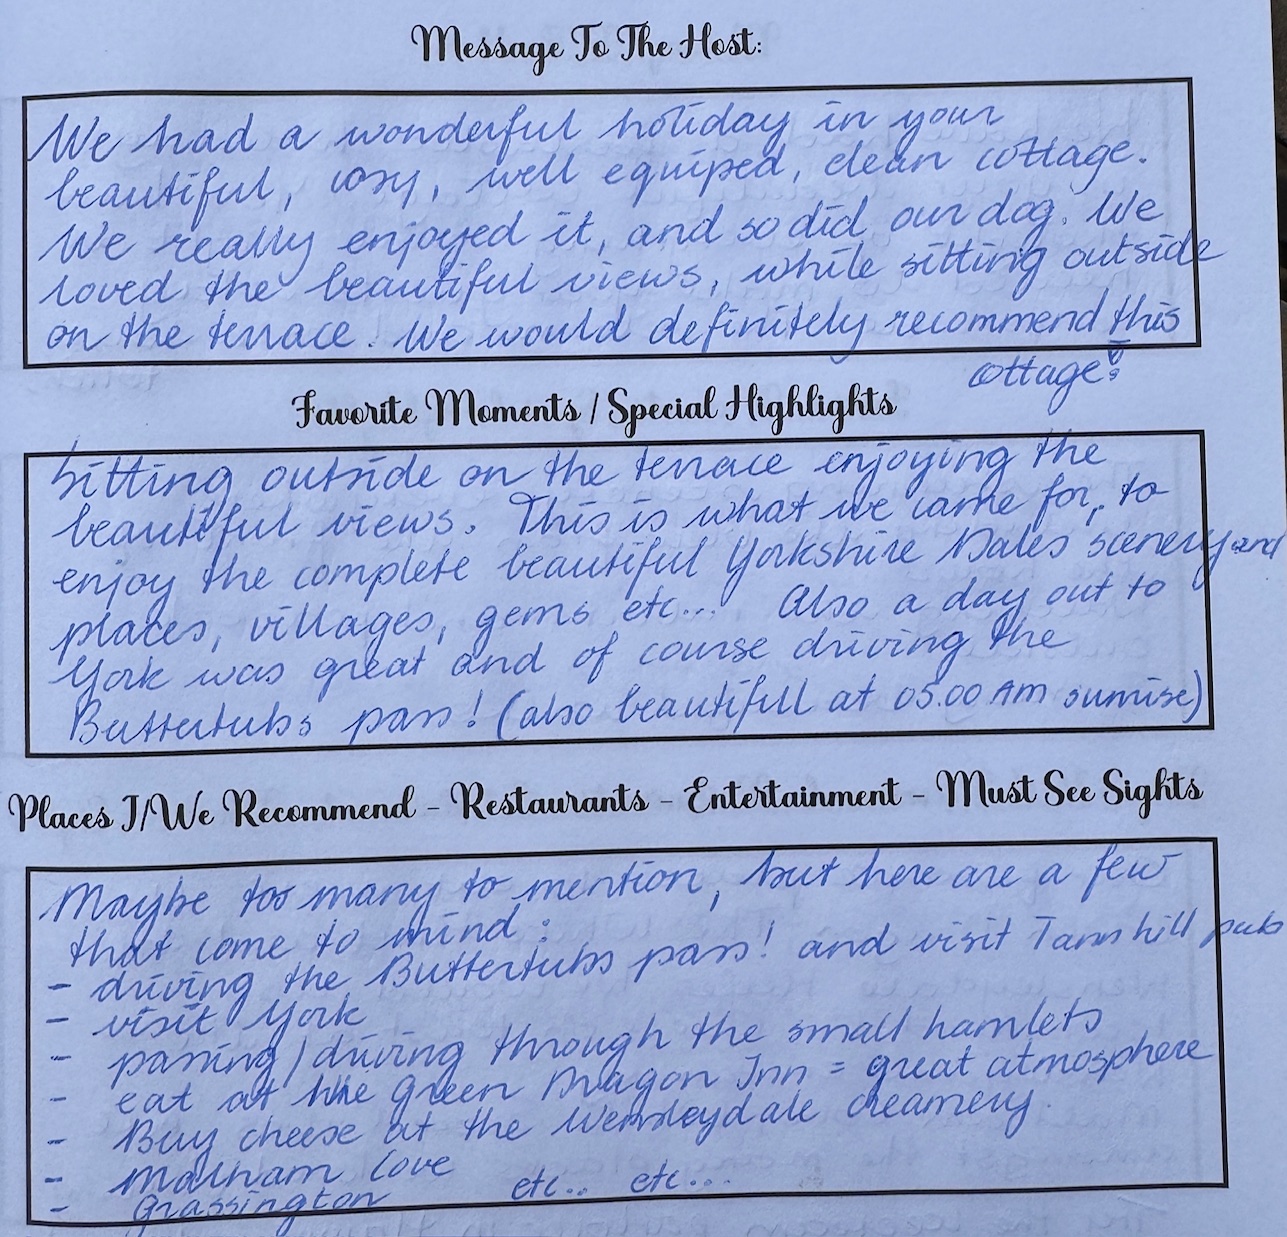 Message To The Host:
We had a wonderful holiday in your
beautiful, cosy, well equiped, clean cottage.
We really enjoyed it, and so did our dog. We
loved the beautiful views, while sitting outside
on the terrace. We would definitely recommend this
cottage!
Favorite Moments / Special Highlights
Sitting outside on the terrace enjoying the
beautiful views. This is what we came for, to
enjoy the complete beautiful Yorkshire Dales scenery and
places, villages, gems etc... Also a day out to
York was great and of course driving the
Buttertubs pass! (also beautifull at 05.00 AM sunrise)
Places I/We Recommend - Restaurants - Entertainment - Must See Sights
Maybe too many to mention, but here are a few
that come to mind:
- driving the Buttertubs pass! and visit Tann hill pub
- visit York
- passing / driving through the small hamlets
- eat at the Green Dragon Inn = great atmosphere
- Buy cheese at the Wensleydale creamery.
- Malham Cove
- Grassington etc.. etc...